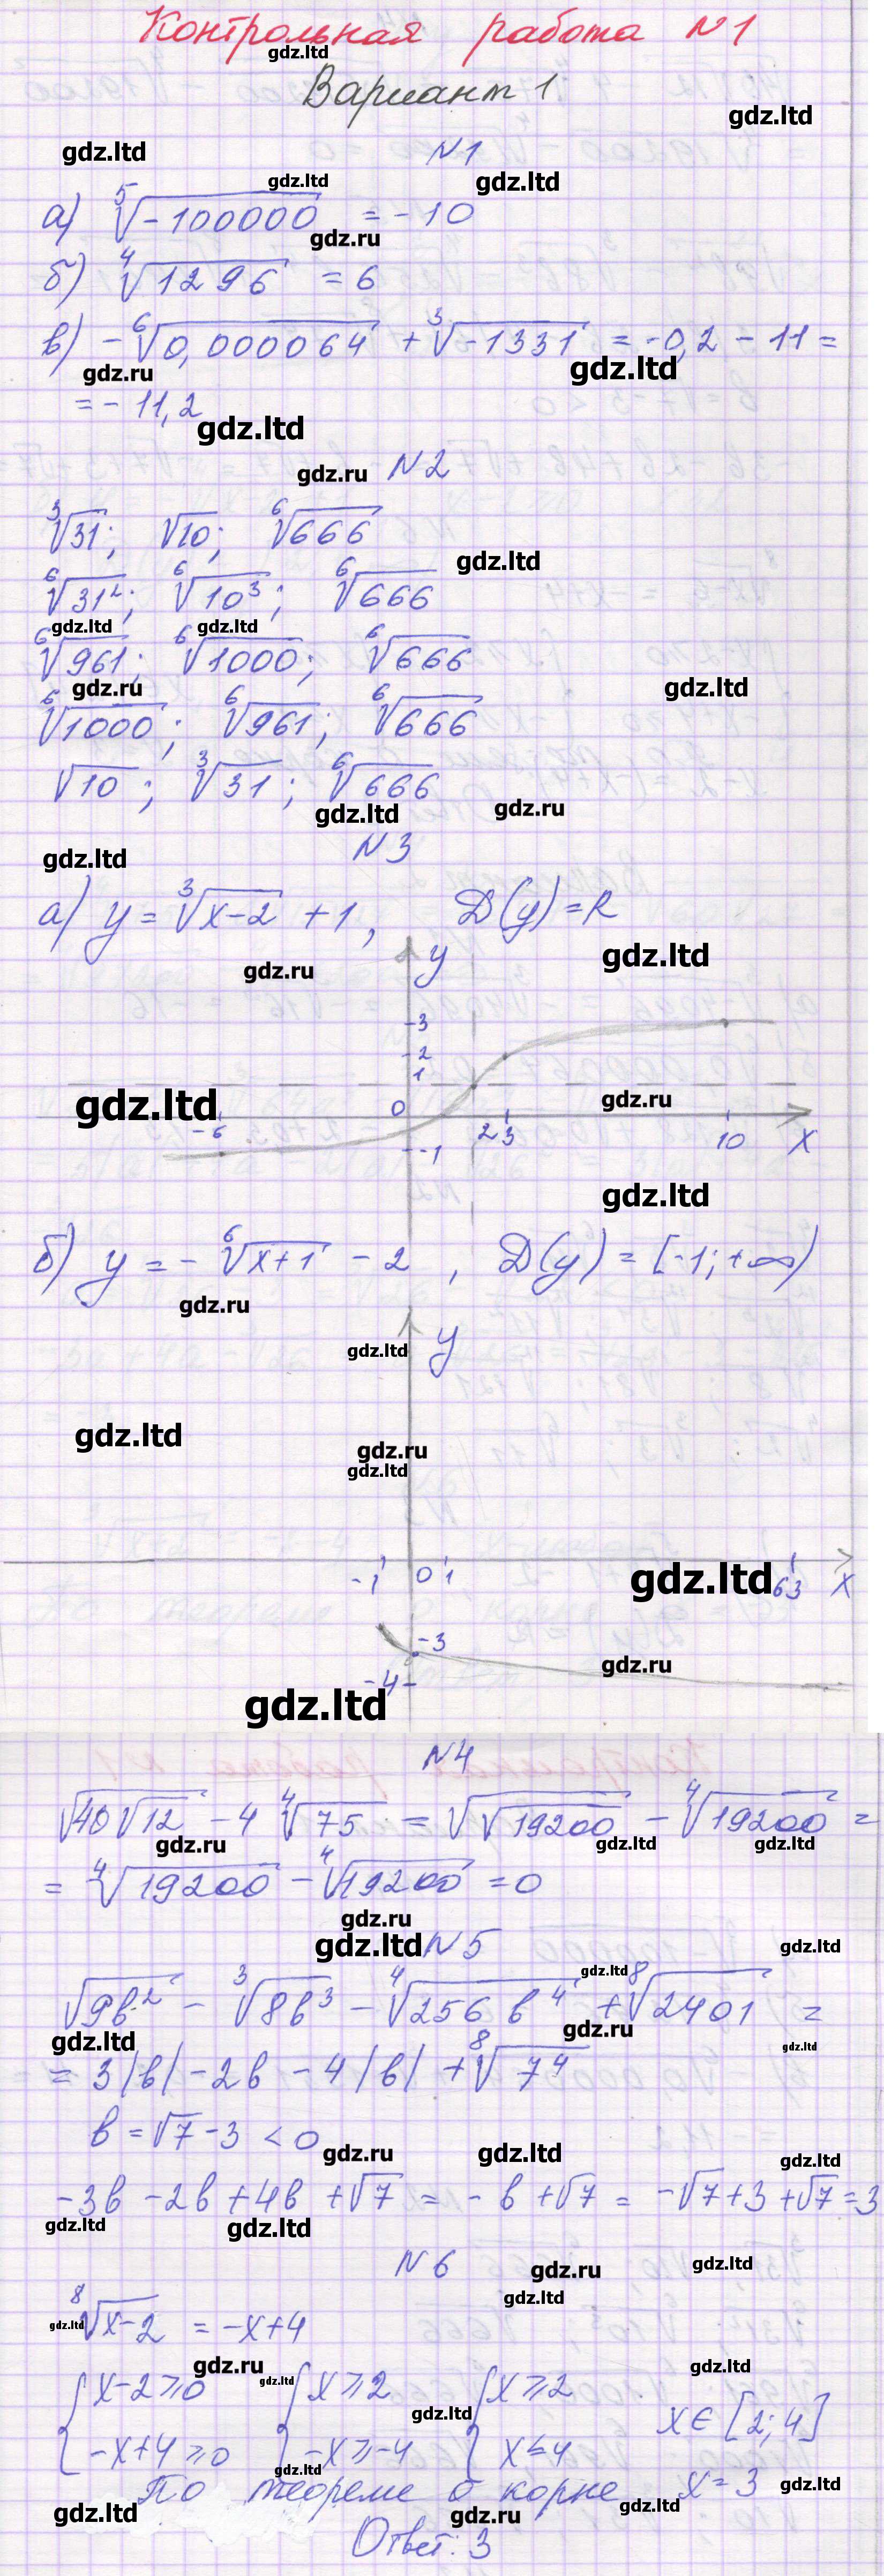 Контрольная работа N1
gdz.ltd
Вариант 1
gdz.ltd
gdz.ltd
N1
gdz.ltd
gdz.ltd
а) ⁵√-100000 = -10
gdz.ru
б) ⁴√1296 = 6
в) -⁶√0,000064 + ³√-1331 = -0,2 - 11 =
gdz.ru
gdz.ltd
= -11,2
gdz.ltd
gdz.ru
N2
³√31; √10; ⁶√666
gdz.ltd
⁶√31²; ⁶√10³; ⁶√666
gdz.ltd
gdz.ltd
⁶√961; ⁶√1000; ⁶√666
gdz.ru
gdz.ltd
⁶√1000; ⁶√961; ⁶√666
√10; ³√31; ⁶√666
gdz.ltd
gdz.ru
N3
gdz.ltd
а) y = ³√x-2 + 1, D(y) = R
gdz.ru
y
gdz.ltd
3
2
1
gdz.ltd
0
gdz.ru
-6
-1
2
3
10
x
gdz.ltd
б) y = -⁶√x+1 - 2, D(y) = [-1; +∞)
gdz.ru
gdz.ltd
y
gdz.ltd
gdz.ru
gdz.ltd
-1
0
1
gdz.ltd
63
x
-3
gdz.ru
-4
gdz.ltd
N4
√40√12 - 4 ⁴√75 = √√19200 - ⁴√19200 =
gdz.ru
gdz.ltd
gdz.ltd
= ⁴√19200 - ⁴√19200 = 0
gdz.ru
gdz.ltd
N5
gdz.ltd
gdz.ltd
√9b² - ³√8b³ - ⁴√256b⁴ + ⁸√2401 =
gdz.ltd
gdz.ru
gdz.ltd
= 3|b| - 2b - 4|b| + ⁸√7⁴
b = √7 - 3 < 0
gdz.ru
gdz.ltd
gdz.ltd
-3b - 2b + 4b + √7 = -b + √7 = -√7 + 3 + √7 = 3
gdz.ltd
gdz.ltd
N6
gdz.ru
gdz.ltd
gdz.ltd
gdz.ltd
⁸√x-2 = -x+4
gdz.ru
gdz.ltd
gdz.ltd
{x-2≥0 {x≥2 {x≥2
gdz.ltd
x∈[2;4]
-x+4≥0 -x≥-4 x≤4
gdz.ltd
По теореме о корне x=3
gdz.ltd
gdz.ltd
gdz.ru
gdz.ltd
Ответ: 3